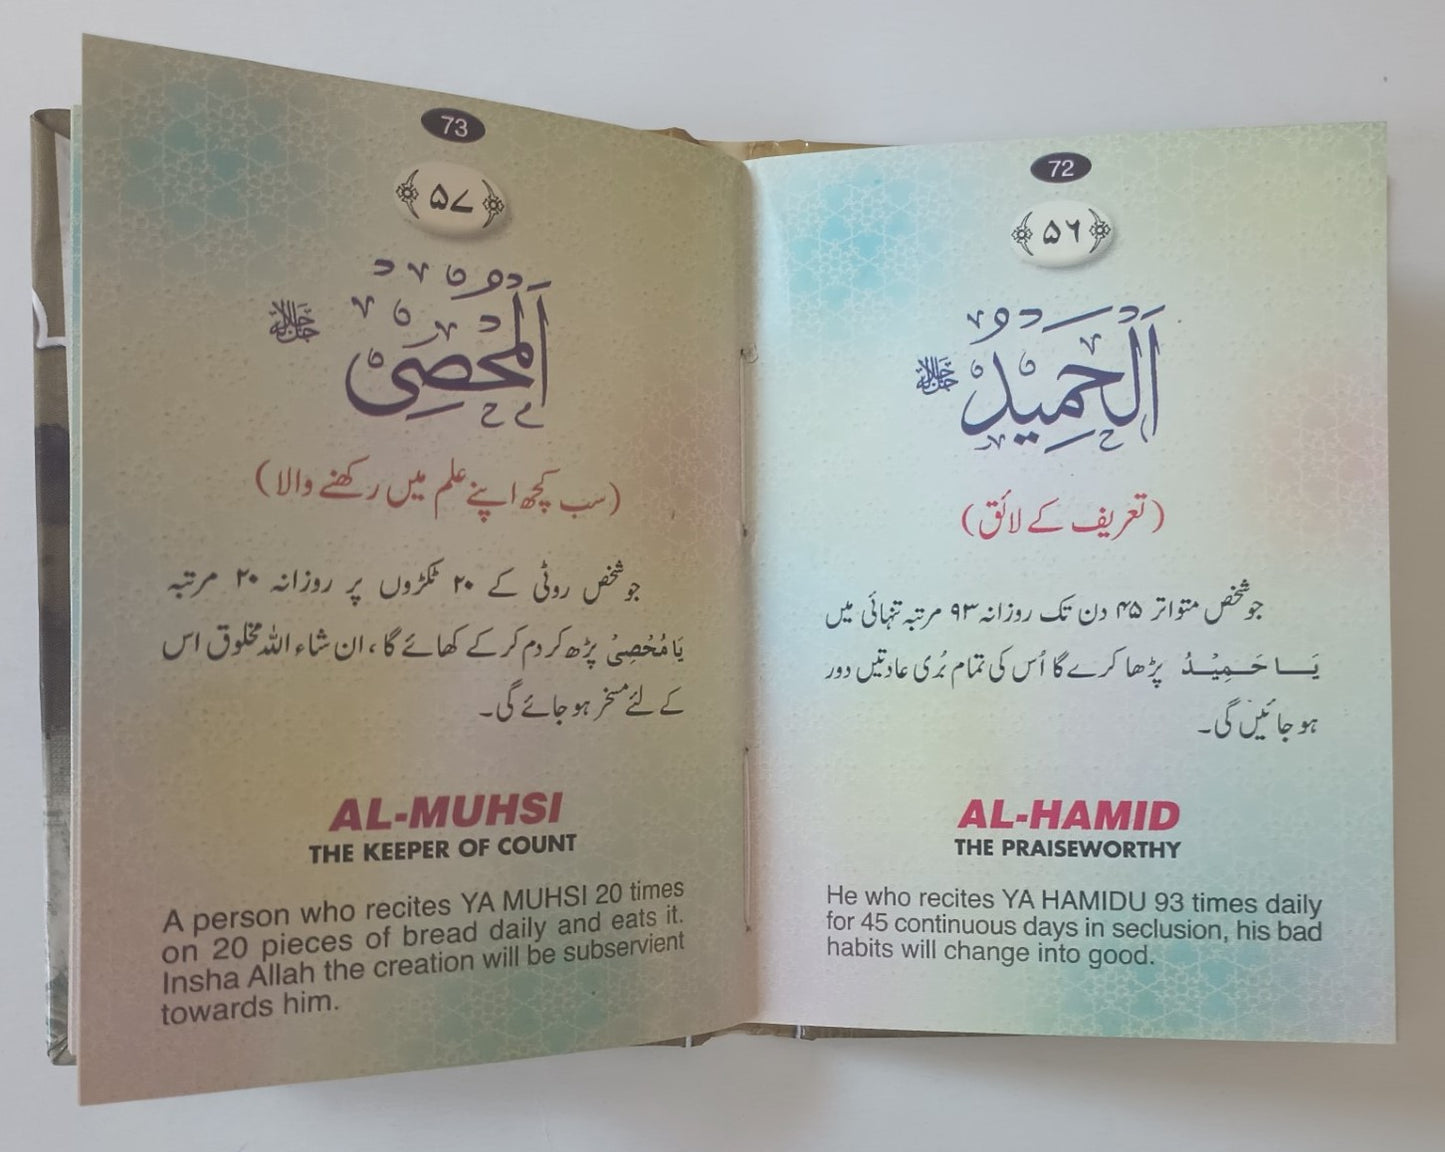 72
۵۶
اَلْحَمِيْدُ ﷻ
(تعریف کے لائق)
جو شخص متواتر ۴۵ دن تک روزانہ ۹۳ مرتبہ تنہائی میں
یَا حَمِیْدُ پڑھا کرے گا اُس کی تمام بُری عادتیں دور
ہو جائیں گی۔
AL-HAMID
THE PRAISEWORTHY
He who recites YA HAMIDU 93 times daily
for 45 continuous days in seclusion, his bad
habits will change into good.
73
۵۷
اَلْمُحْصِیْ ﷻ
(سب کچھ اپنے علم میں رکھنے والا)
جو شخص روٹی کے ۲۰ ٹکڑوں پر روزانہ ۲۰ مرتبہ
یَا مُحْصِیْ پڑھ کر دم کر کے کھائے گا، ان شاء اللہ مخلوق اس
کے لئے مسخر ہو جائے گی۔
AL-MUHSI
THE KEEPER OF COUNT
A person who recites YA MUHSI 20 times
on 20 pieces of bread daily and eats it.
Insha Allah the creation will be subservient
towards him.